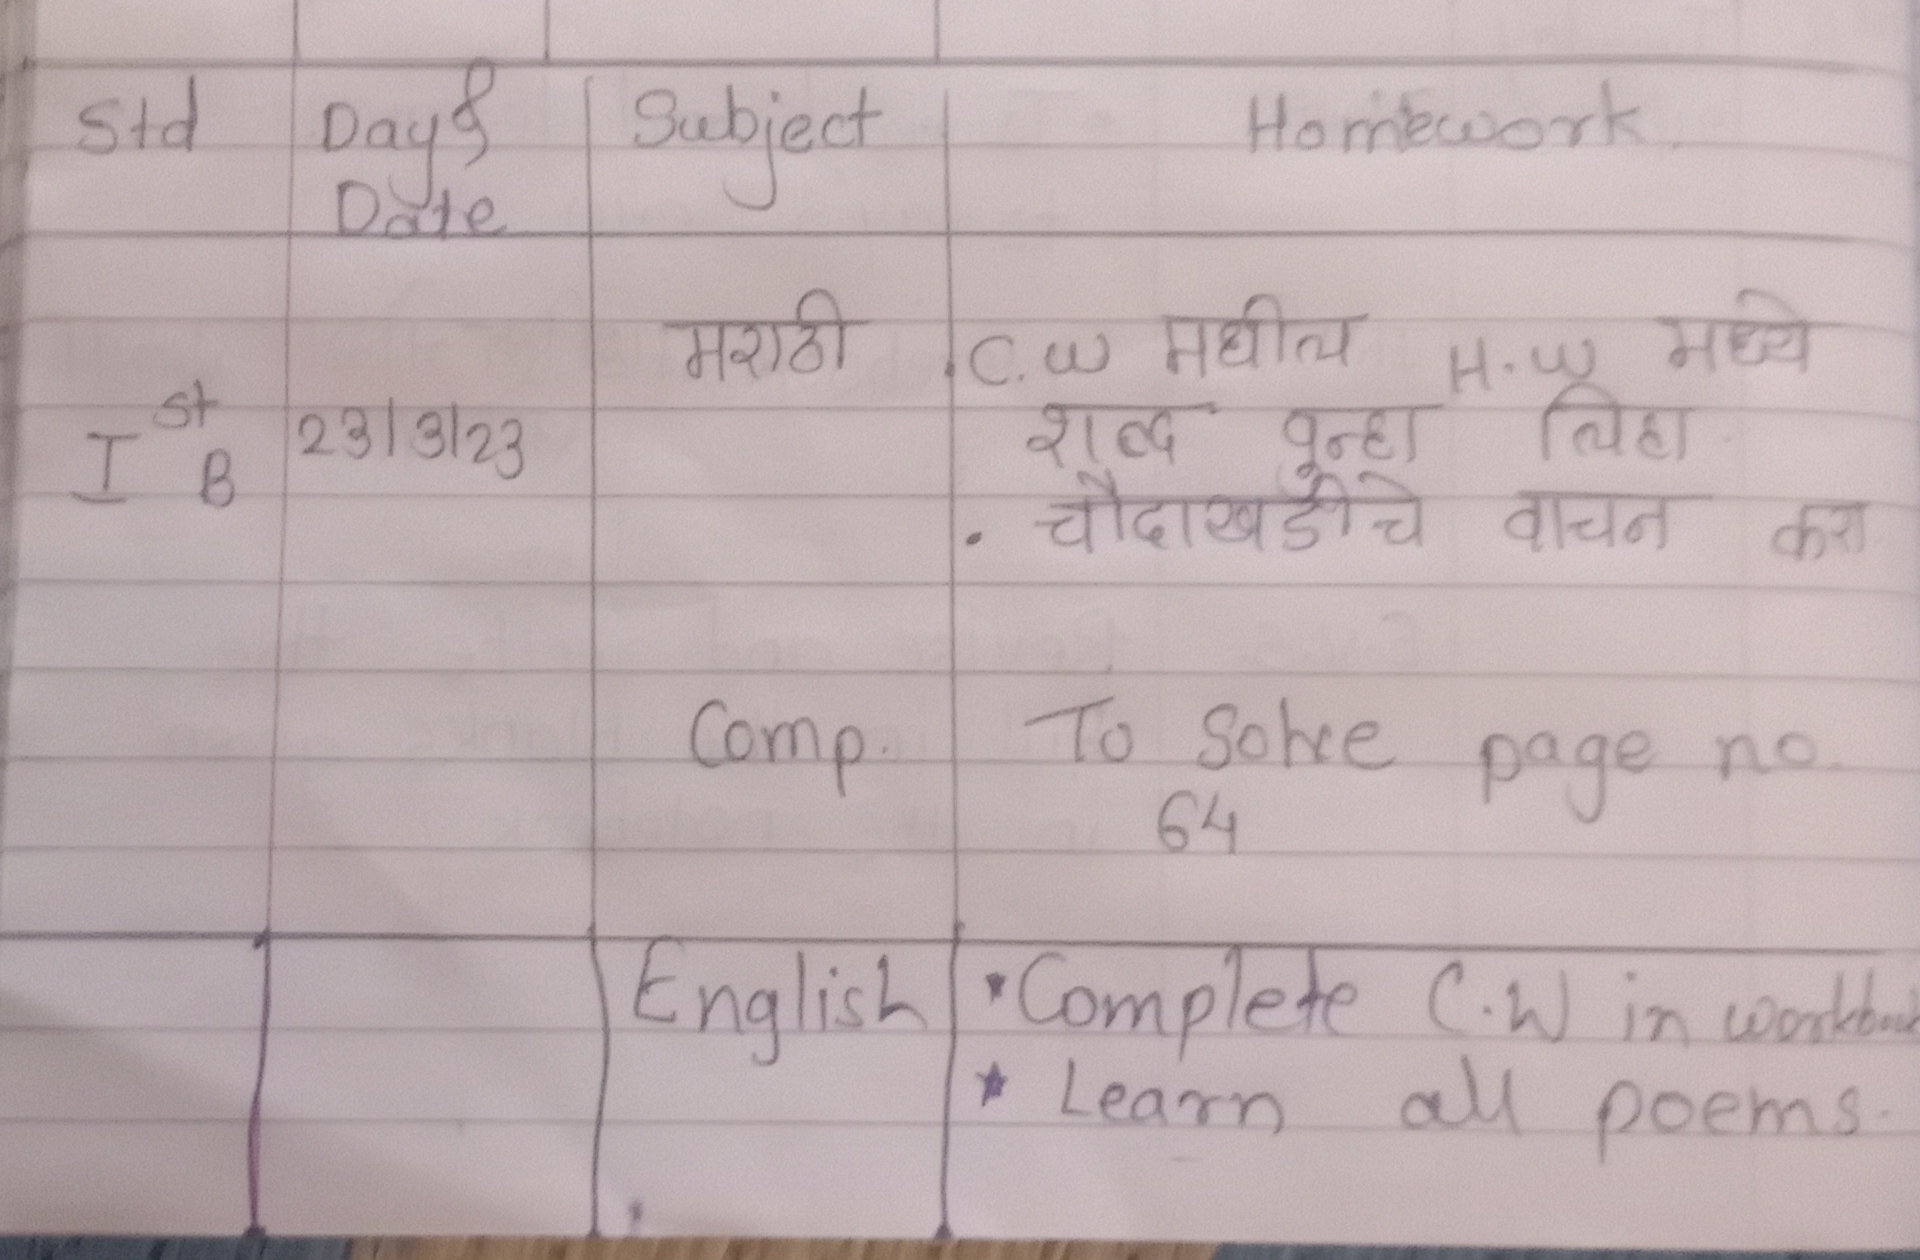 Std Day & Subject Homework
Date
मराठी . C.W मधील H.W मध्ये
Ist B 23/3/23 शब्द पुन्हा लिहा
. चौदाखडीचे वाचन करा
Comp. To Solve page no.
64
English * Complete C.W in workbook
* Learn all poems.